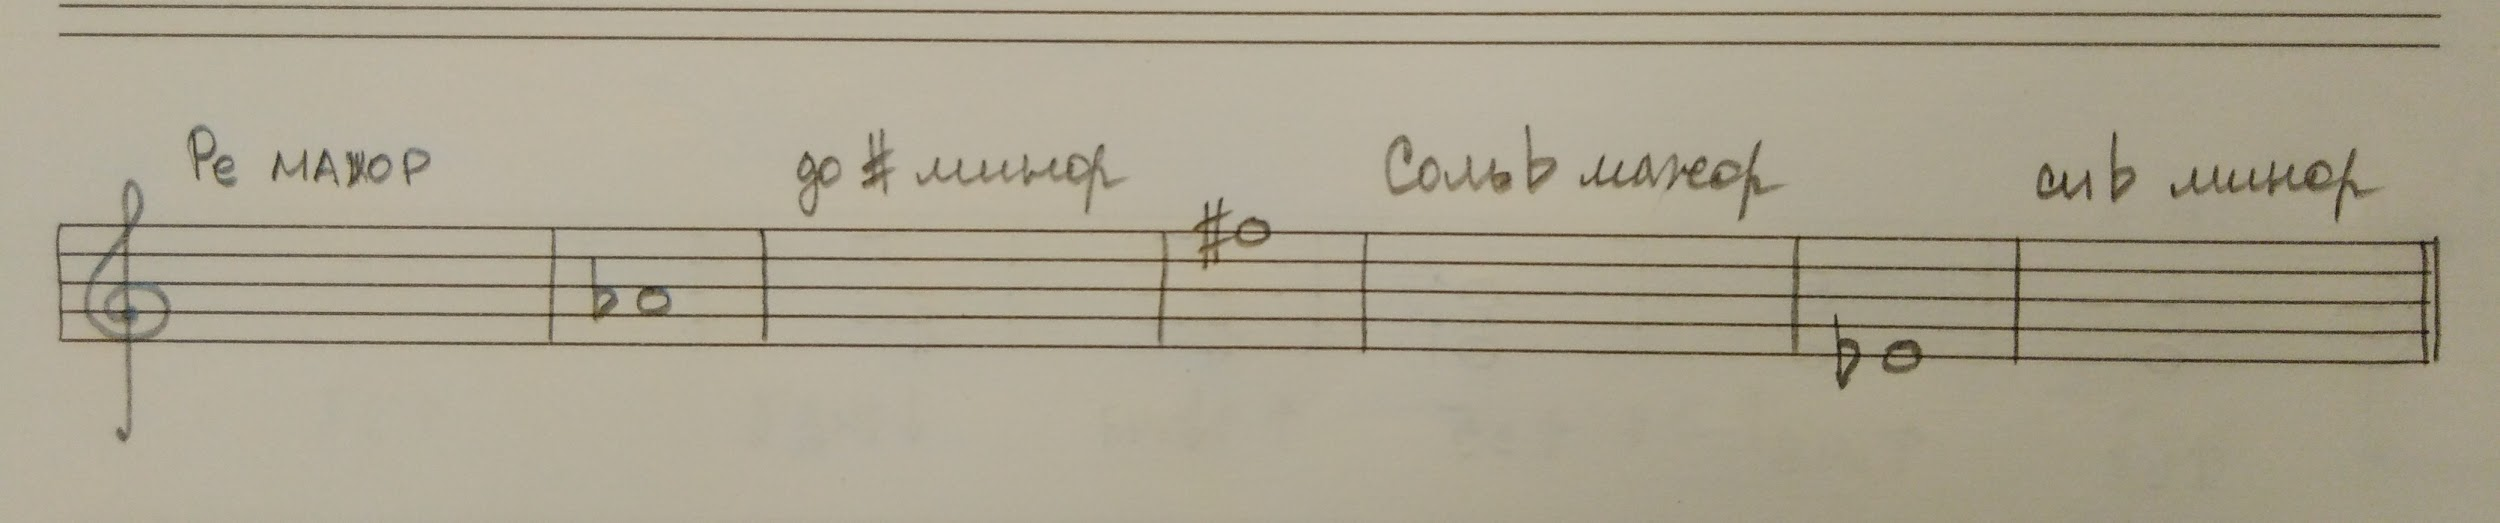 Ре мажор до # минор Соль b мажор си b минор